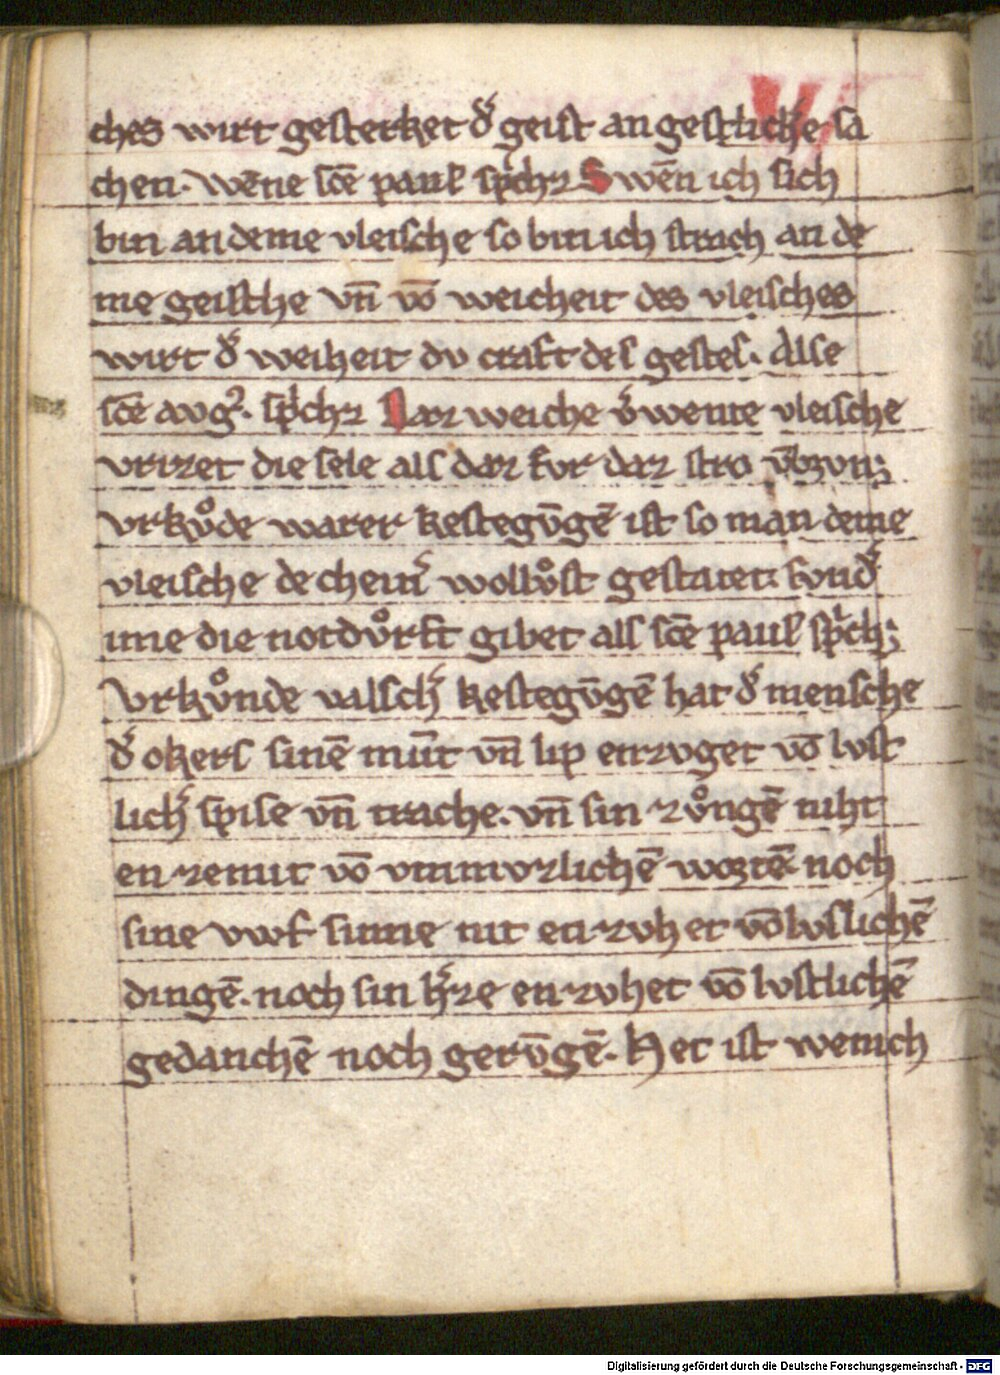 ches wirt gesterket d͛ geist an gestlich͛e sa
chen. Wēne sc̄e paul sp̍chꝫ Swēn ich sich
bin an deme vleische so bin ich strach an de
me geisthe vn̄ vō weicheit des vleisches
wirt d͛ weiheit dv craft des gestes. Alse
sc̄e avg᷒. sp̍chꝫ Daz weiche v͛wente vleische
vrizet die sele als daz fvr daz stro
vrkvͦde warer kestegūgē ist so man deme
vleische de chein͛ wollvͦst gestatet. svnd͛
ime die notdvͦrft gibet als sc̄e paul sp̍ch:
Vrkvͦnde valsch͛ kestegūgē hat d͛ mensche
d͛ okers sinē mūt vn̄ lip enzvget vō lvst
lich͛ spise vn̄ trache. vn̄ sin zvͦngē niht
en zemit vō vnnvzlichē wortē. noch
sine vwf sinne nit en zvhet vō lvslichē
dingē. noch sin h͛ze en zvhet vō lvstlichē
gedanchē noch gerūgē. Her ist wenich
Digitalisierung gefördert durch die Deutsche Forschungsgemeinschaft - DFG